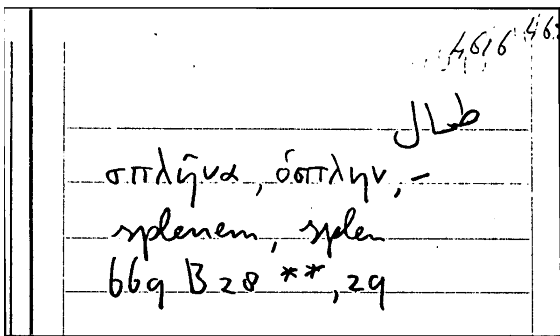 4616
طحال
σπλῆνα, ὁσπλην, -
splenem, splen
669 B 28 **, 29